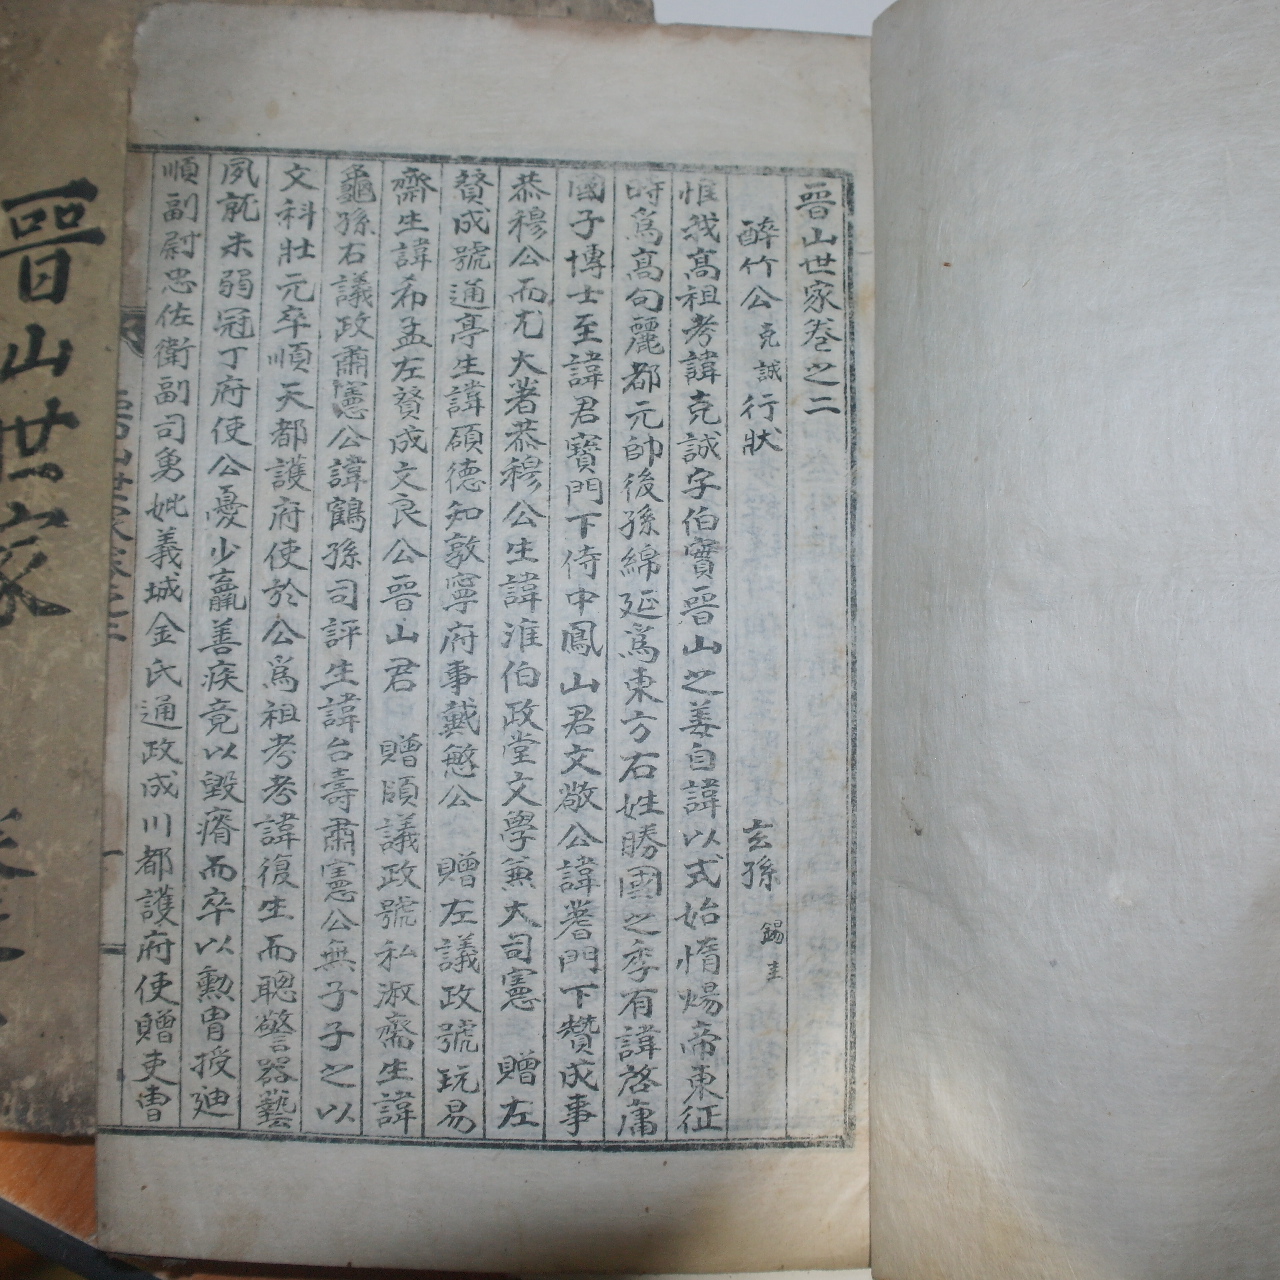 晉山世家卷之二
醉竹公克誠行狀 玄孫錫圭
惟我高祖考諱克誠字伯實晉山之姜自諱以式始惰煬帝東征
時爲高句麗都元帥後孫綿延爲東方右姓勝國之季有諱啓庸
國子博士至諱君寶門下侍中鳳山君文敬公諱蓍門下贊成事
恭穆公而尤大著恭穆公生諱淮伯政堂文學兼大司憲 贈左
贊成號通亭生諱碩德知敦寧府事戴慜公 贈左議政號玩易
齋生諱希孟左贊成文良公晉山君 贈領議政號私淑齋生諱
龜孫右議政肅憲公諱鶴孫司評生諱台壽肅憲公無子子之以
文科壯元卒順天都護府使於公爲祖考考諱復生而聰警器藝
夙就未弱冠丁府使公憂少羸善疾竟以毀瘠而卒以勳冑授迪
順副尉忠佐衛副司勇妣義城金氏通政成川都護府使贈吏曹
晉山世家